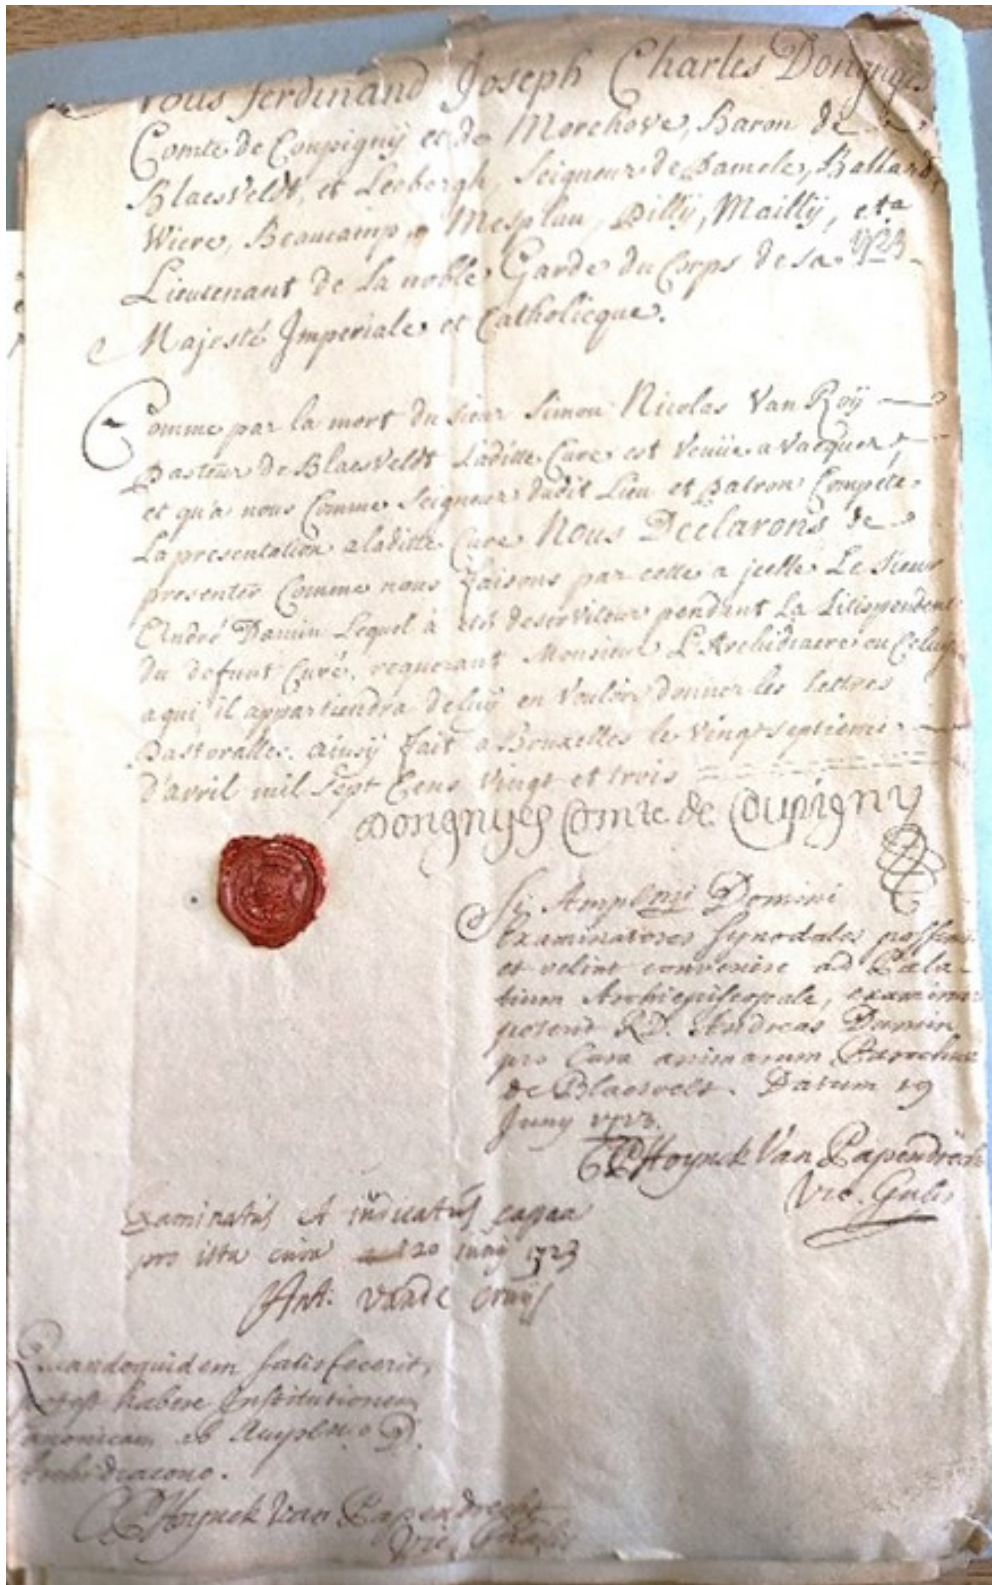 Nous Ferdinand Joseph Charles Dongnyes
Comte de Coupignÿ et de Morchove, Baron de
Blaesveldt, et Leebergh, Seigneur de Pamele, Ballard,
Wiere, Beaucamp, Mesplau, Pillÿ, Maillÿ, eta
1723
Lieutenant de La noble Garde du Corps de sa
Majesté Jmperiale et Catholicque.
Comme par la mort du sieur Simon Nicolas Van Roÿ
pasteur de Blaesveldt Laditte Cure est Venüe a Vacquer,
et qu'a nous Comme Seigneur dudit Lieu et patron Compete
La presentation a laditte Cure Nous Declarons de
presenter Comme nous faisons par cette a jcelle Le Sieur
André Damin Lequel à eté deserviteur pendant La Litispendent
du defunt Curé, requerant Monsieur L'Archidiacre ou Celuy
a qui il appartiendra de luÿ en Vouloir donner les lettres
pastoralles. ainsÿ fait a Bruxelles le Vingt septieme
d'avril mil Sept Cens Vingt et trois
Dongnyes Comte de Coupigny
Si Ampl.mi Domini
Examinatores synodales possint
et velint convenire ad Pala-
tium Archiepiscopale, examinari
poterit R.D. Andreas Damin
pro Cura animarum Parochiae
de Blaesvelt. Datum 19
Juny 1723.
CP Hoynck Van Papendrecht
Vic. Gnlis
Examinatus et iudicatus capax
pro ista cura 20 iunij 1723
Ant. vande Cruijs
Quandoquidem satisfecerit,
potest habere Institutionem
Canonicam ab Ampl.mo D.
Archidiacono.
CP Hoynck Van Papendrecht
Vic. Gnalis